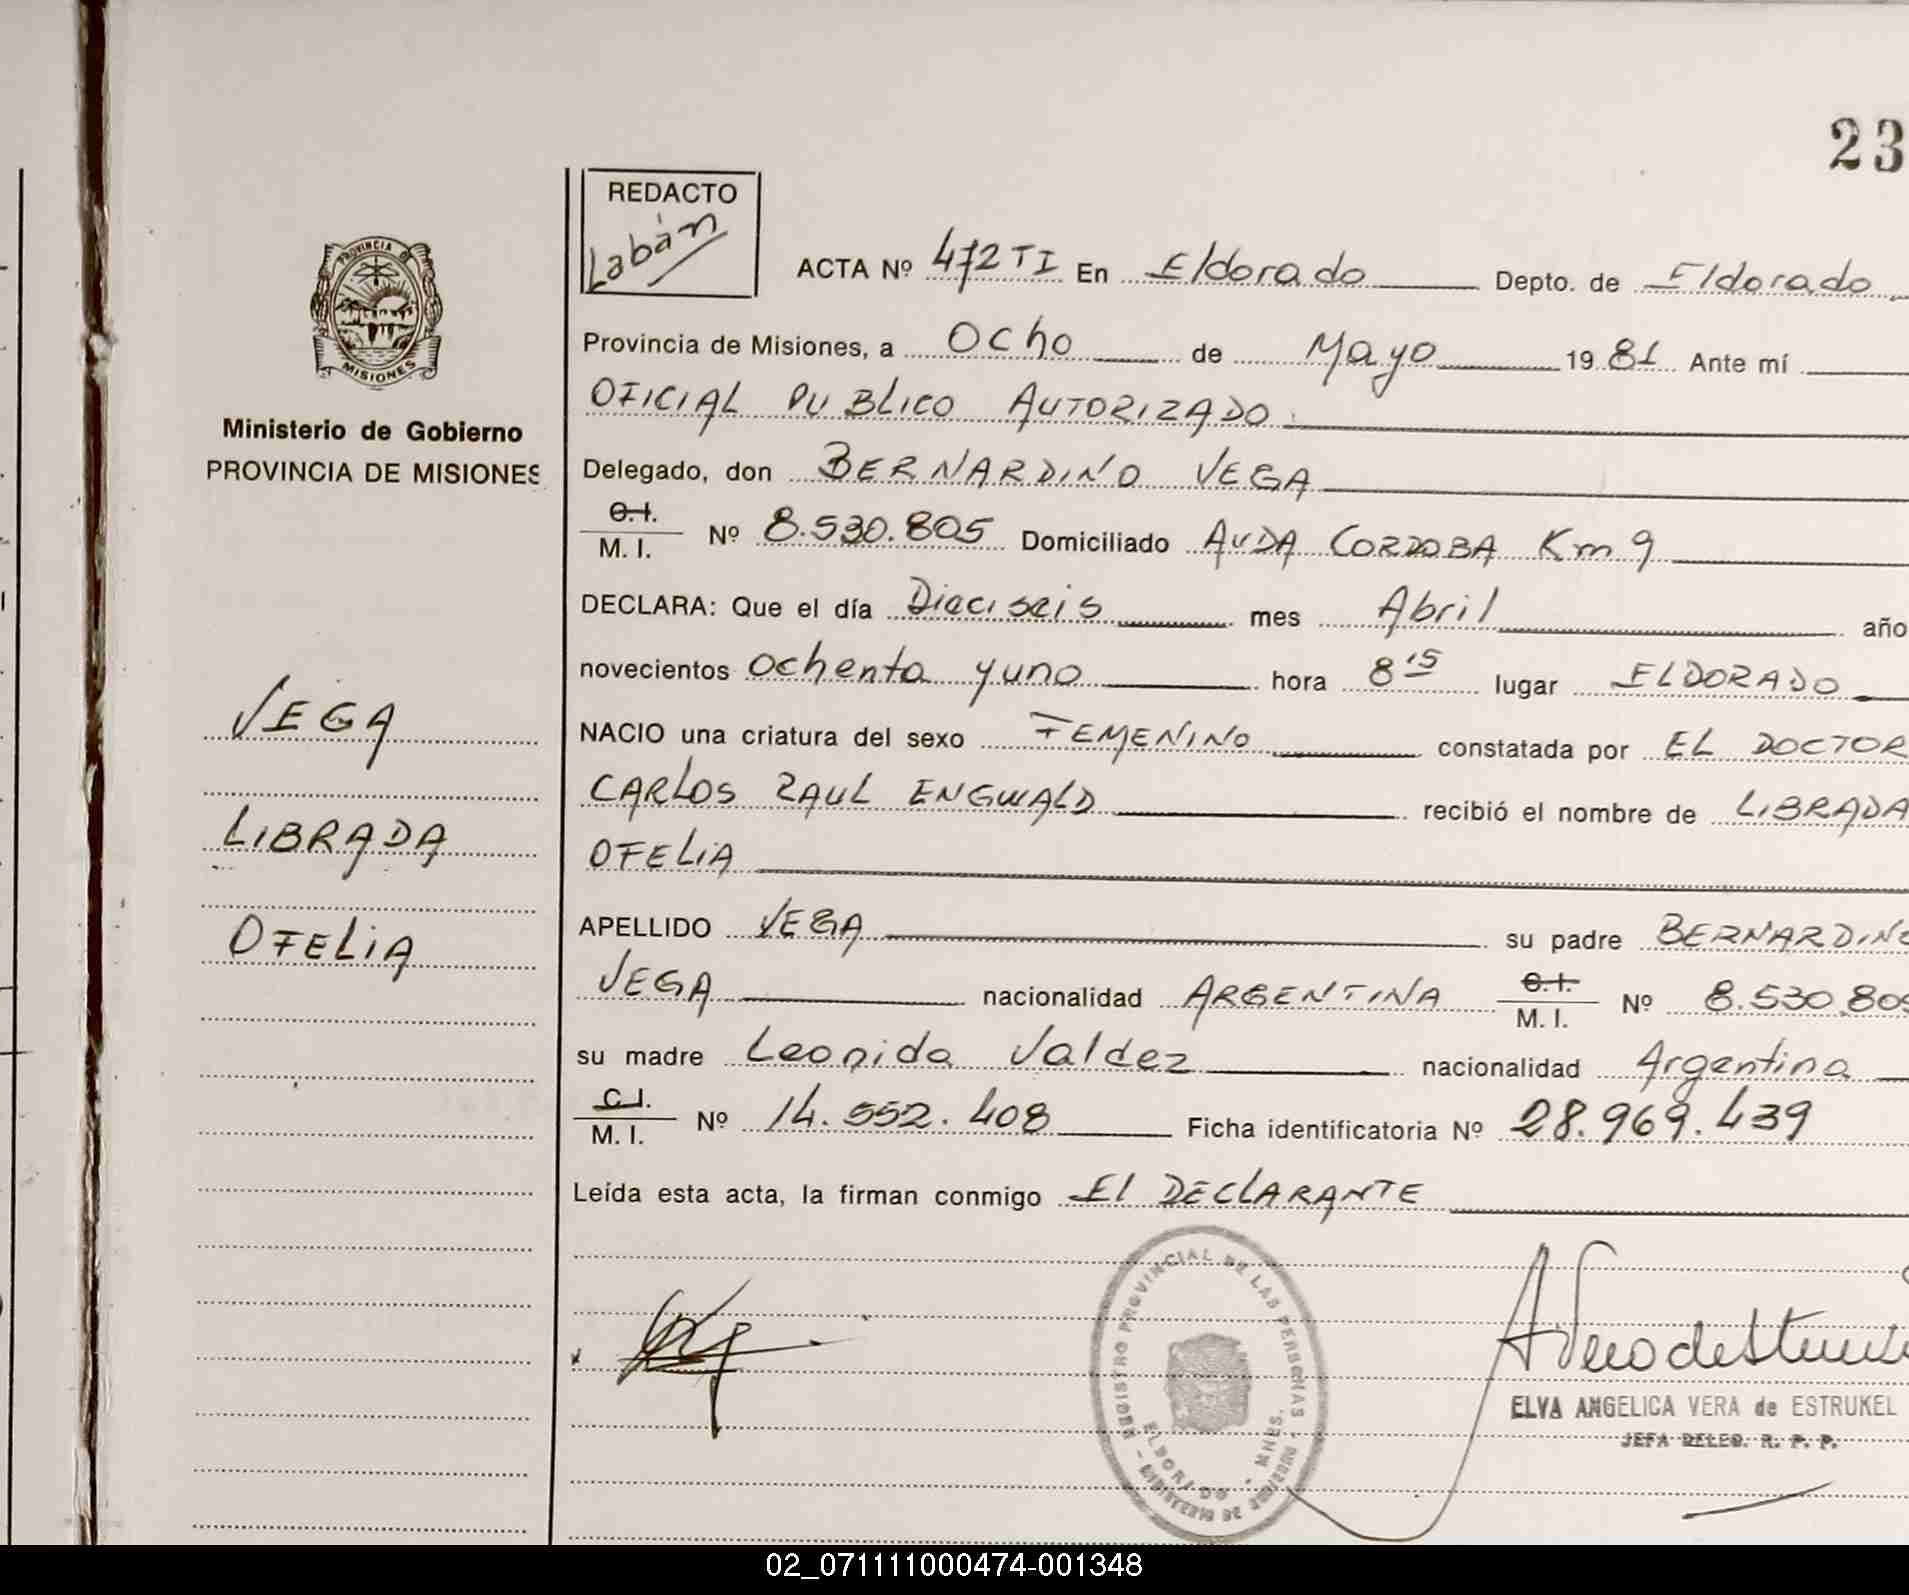 23
REDACTO
Labán
PROVINCIA DE
MISIONES
ACTA Nº 472 TI En Eldorado Depto. de Eldorado
Provincia de Misiones, a Ocho de Mayo 1981 Ante mí
OFICIAL PUBLICO AUTORIZADO
Ministerio de Gobierno
PROVINCIA DE MISIONES
Delegado, don BERNARDINO VEGA
C.I.
M. I. Nº 8.530.805 Domiciliado AVDA CORDOBA Km 9
DECLARA: Que el día Dieciseis mes Abril año
novecientos ochenta y uno hora 8 15 lugar ELDORADO
VEGA
NACIO una criatura del sexo FEMENINO constatada por EL DOCTOR
CARLOS RAUL ENGWALD recibió el nombre de LIBRADA
LIBRADA
OFELIA
APELLIDO VEGA su padre BERNARDINO
OFELIA
VEGA nacionalidad ARGENTINA C.I. M. I. Nº 8.530.805
su madre Leonida Valdez nacionalidad Argentina
C.I.
M. I. Nº 14.552.408 Ficha identificatoria Nº 28.969.439
Leída esta acta, la firman conmigo El DECLARANTE
REGISTRO PROVINCIAL DE LAS PERSONAS
ELDORADO MNES.
ELVA ANGELICA VERA de ESTRUKEL
JEFA DELEG. R. P. P.
02_071111000474-001348